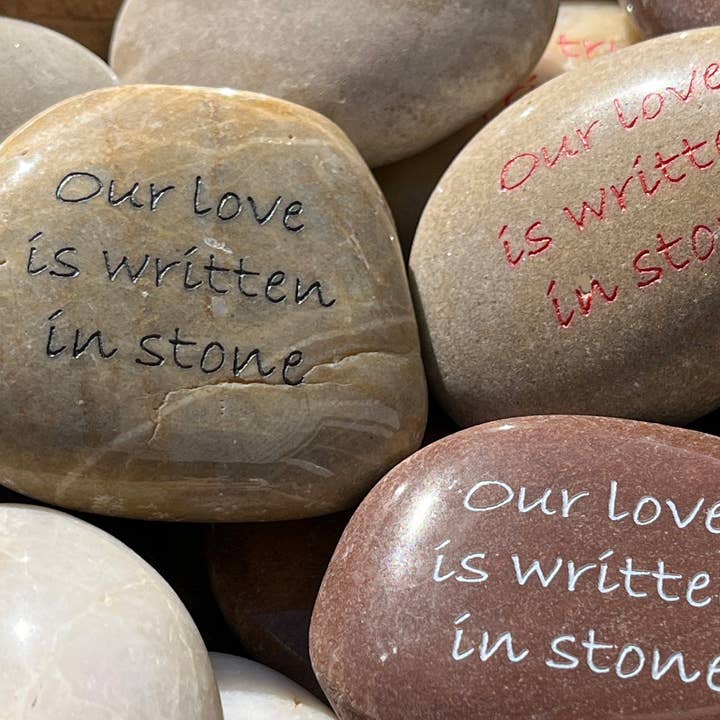 Our love
is written
in stone
Our love
is writte
in sto
Our love
is writte
in stone
tr